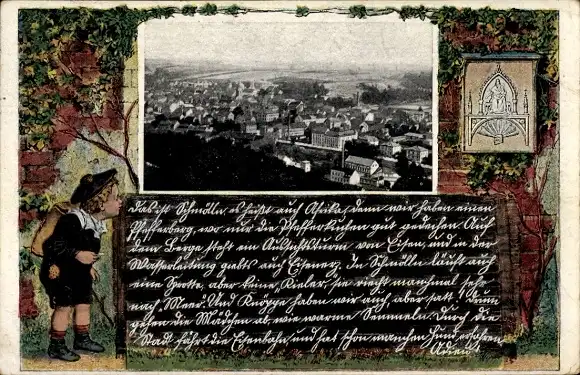 Das ist Schmölln es heißt auch Afrika, denn wir haben einen
Pfefferberg, wo nur die Pfefferkuchen gut gedeihen. Auf
dem Berge steht ein Aussichtsturm von Eisen, und in der
Wasserleitung giebts auch Eisenerz. In Schmölln läuft auch
eine Sprotte, aber keine Kieler, sie riecht manchmal sehr
nach „Meer“. Und Knöppe haben wir auch, aber satt! Drum
gehen die Mädchen ab, wie warme Semmeln. Durch die
Stadt fährt die Eisenbahn, und hat schon manchen Hund erfahren
Adieu!